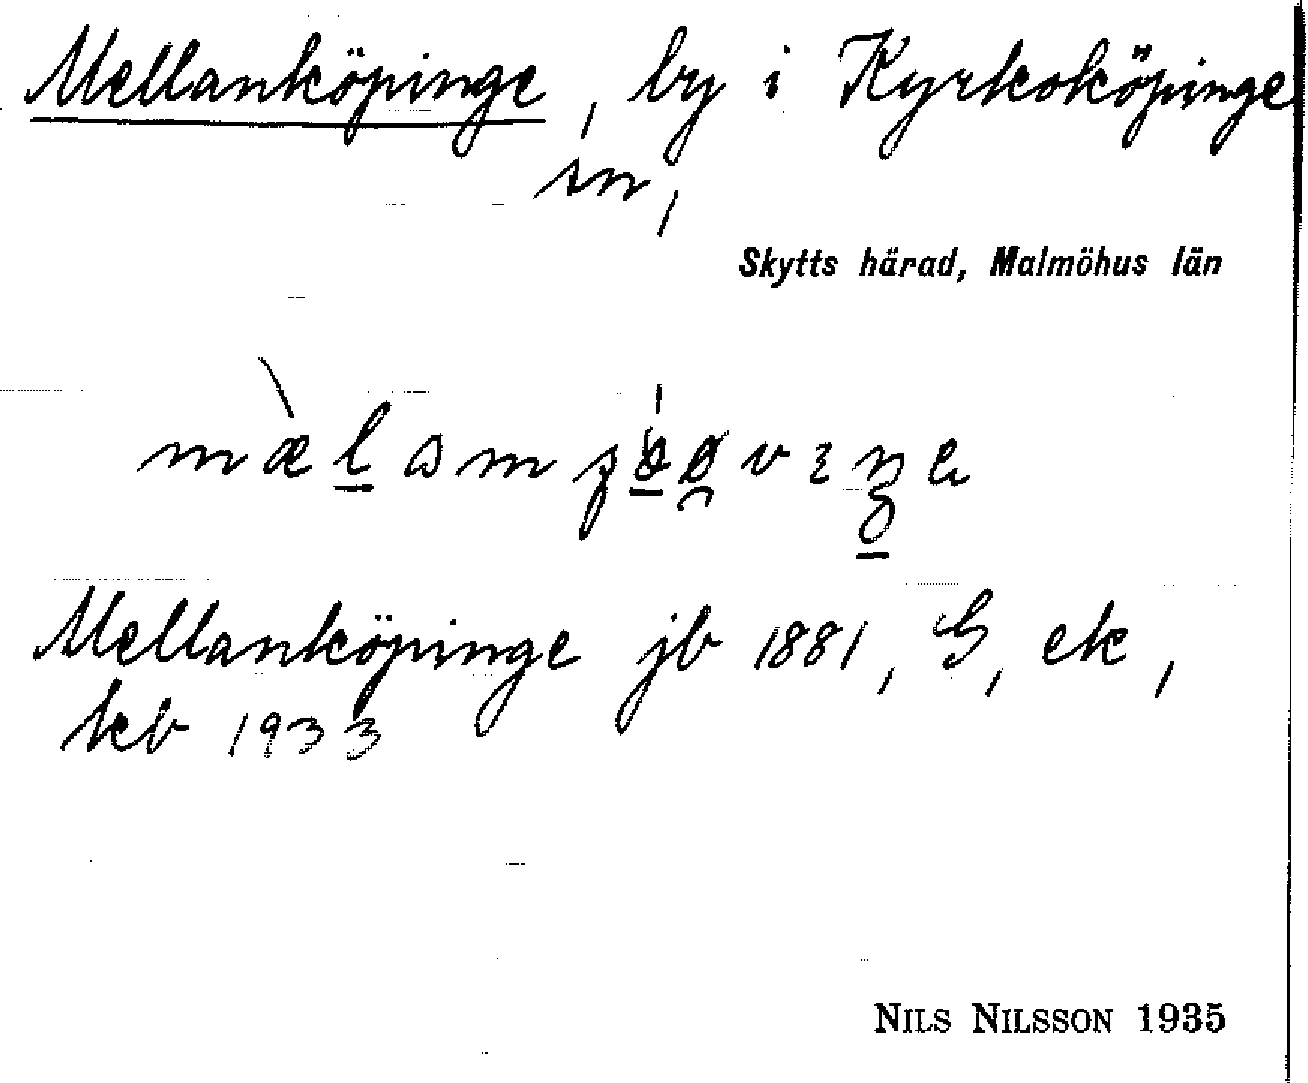 Mellanköpinge, by i Kyrkoköpinge
sn,
Skytts härad, Malmöhus län
Mellanköpinge jb 1881, G, ek,
kb 1933
NILS NILSSON 1935